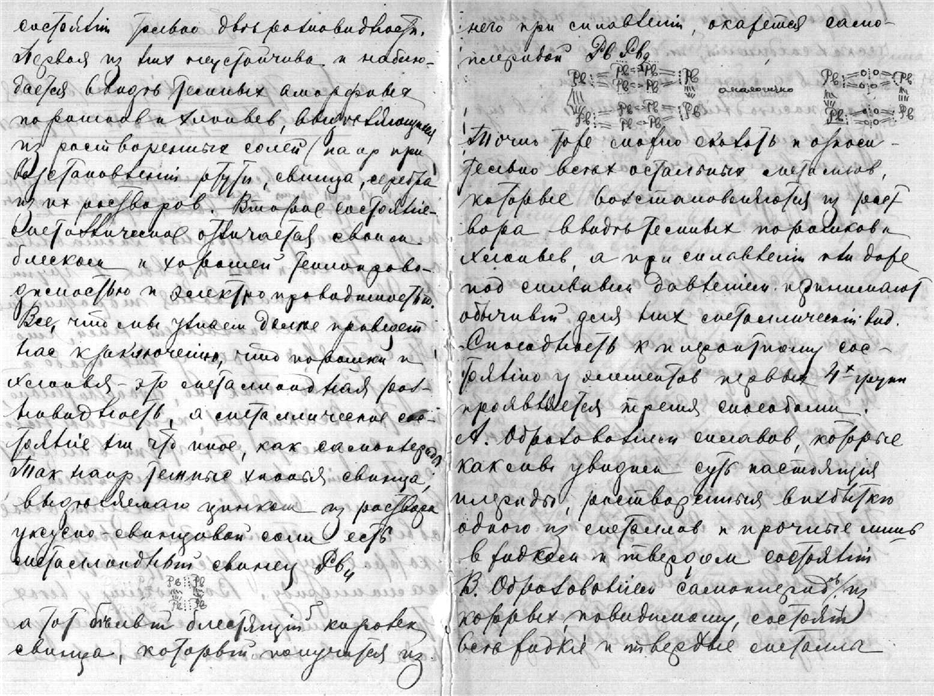 состоянiи только две разновидности.
Первая из них неустойчива и наблю-
дается в виде темных аморфных
порошков и хлопьев,
из растворенных солей (напр при
возстановленiи ртути, свинца, серебра
из их растворов. Второе состоянiе
металлическое отличается своим
блеском и хорошей теплопрово-
димостью и электропроводимостью.
Все, что мы узнаем далее приведет
нас к заключенiю, что порошки и
хлопья – это металлоидная раз-
новидность, а металлическое сос-
тоянiе есть не что иное, как
Так напр темные хлопья свинца,
выделяемаго цинком из раствора
уксусно свинцовой соли есть
металлоидный свинец Pb4
Pb Pb
Pb Pb
а тот белый блестящий королек
свинца, который получится из
него при сплавленiи, окажется само-
перидой Pb Pb4
Pb Pb Pb Pb
Pb Pb Pb Pb
аналогично
Pb O O Pb
Pb O O Pb
Точно тоже можно сказать и относи-
тельно всех остальных металлов,
которые возстановляются из раст
вора в виде темных порошков и
хлопьев, а при сплавленiи или даже
под сильным давленiем принимают
обычный для них металлическiй вид.
Способность к перидному сос-
тоянiю у элементов первых 4х групп
проявляется тремя способами:
А. Образованiем сплавов, которые
как мы увидим суть настоящiя
периды, растворенныя в избытке
одного из металлов и прочные лишь
в жидком и твердом состоянiи
В. Образованiем самоперидов, из
которых повидимому, состоят
все жидкiе и твердые металлы